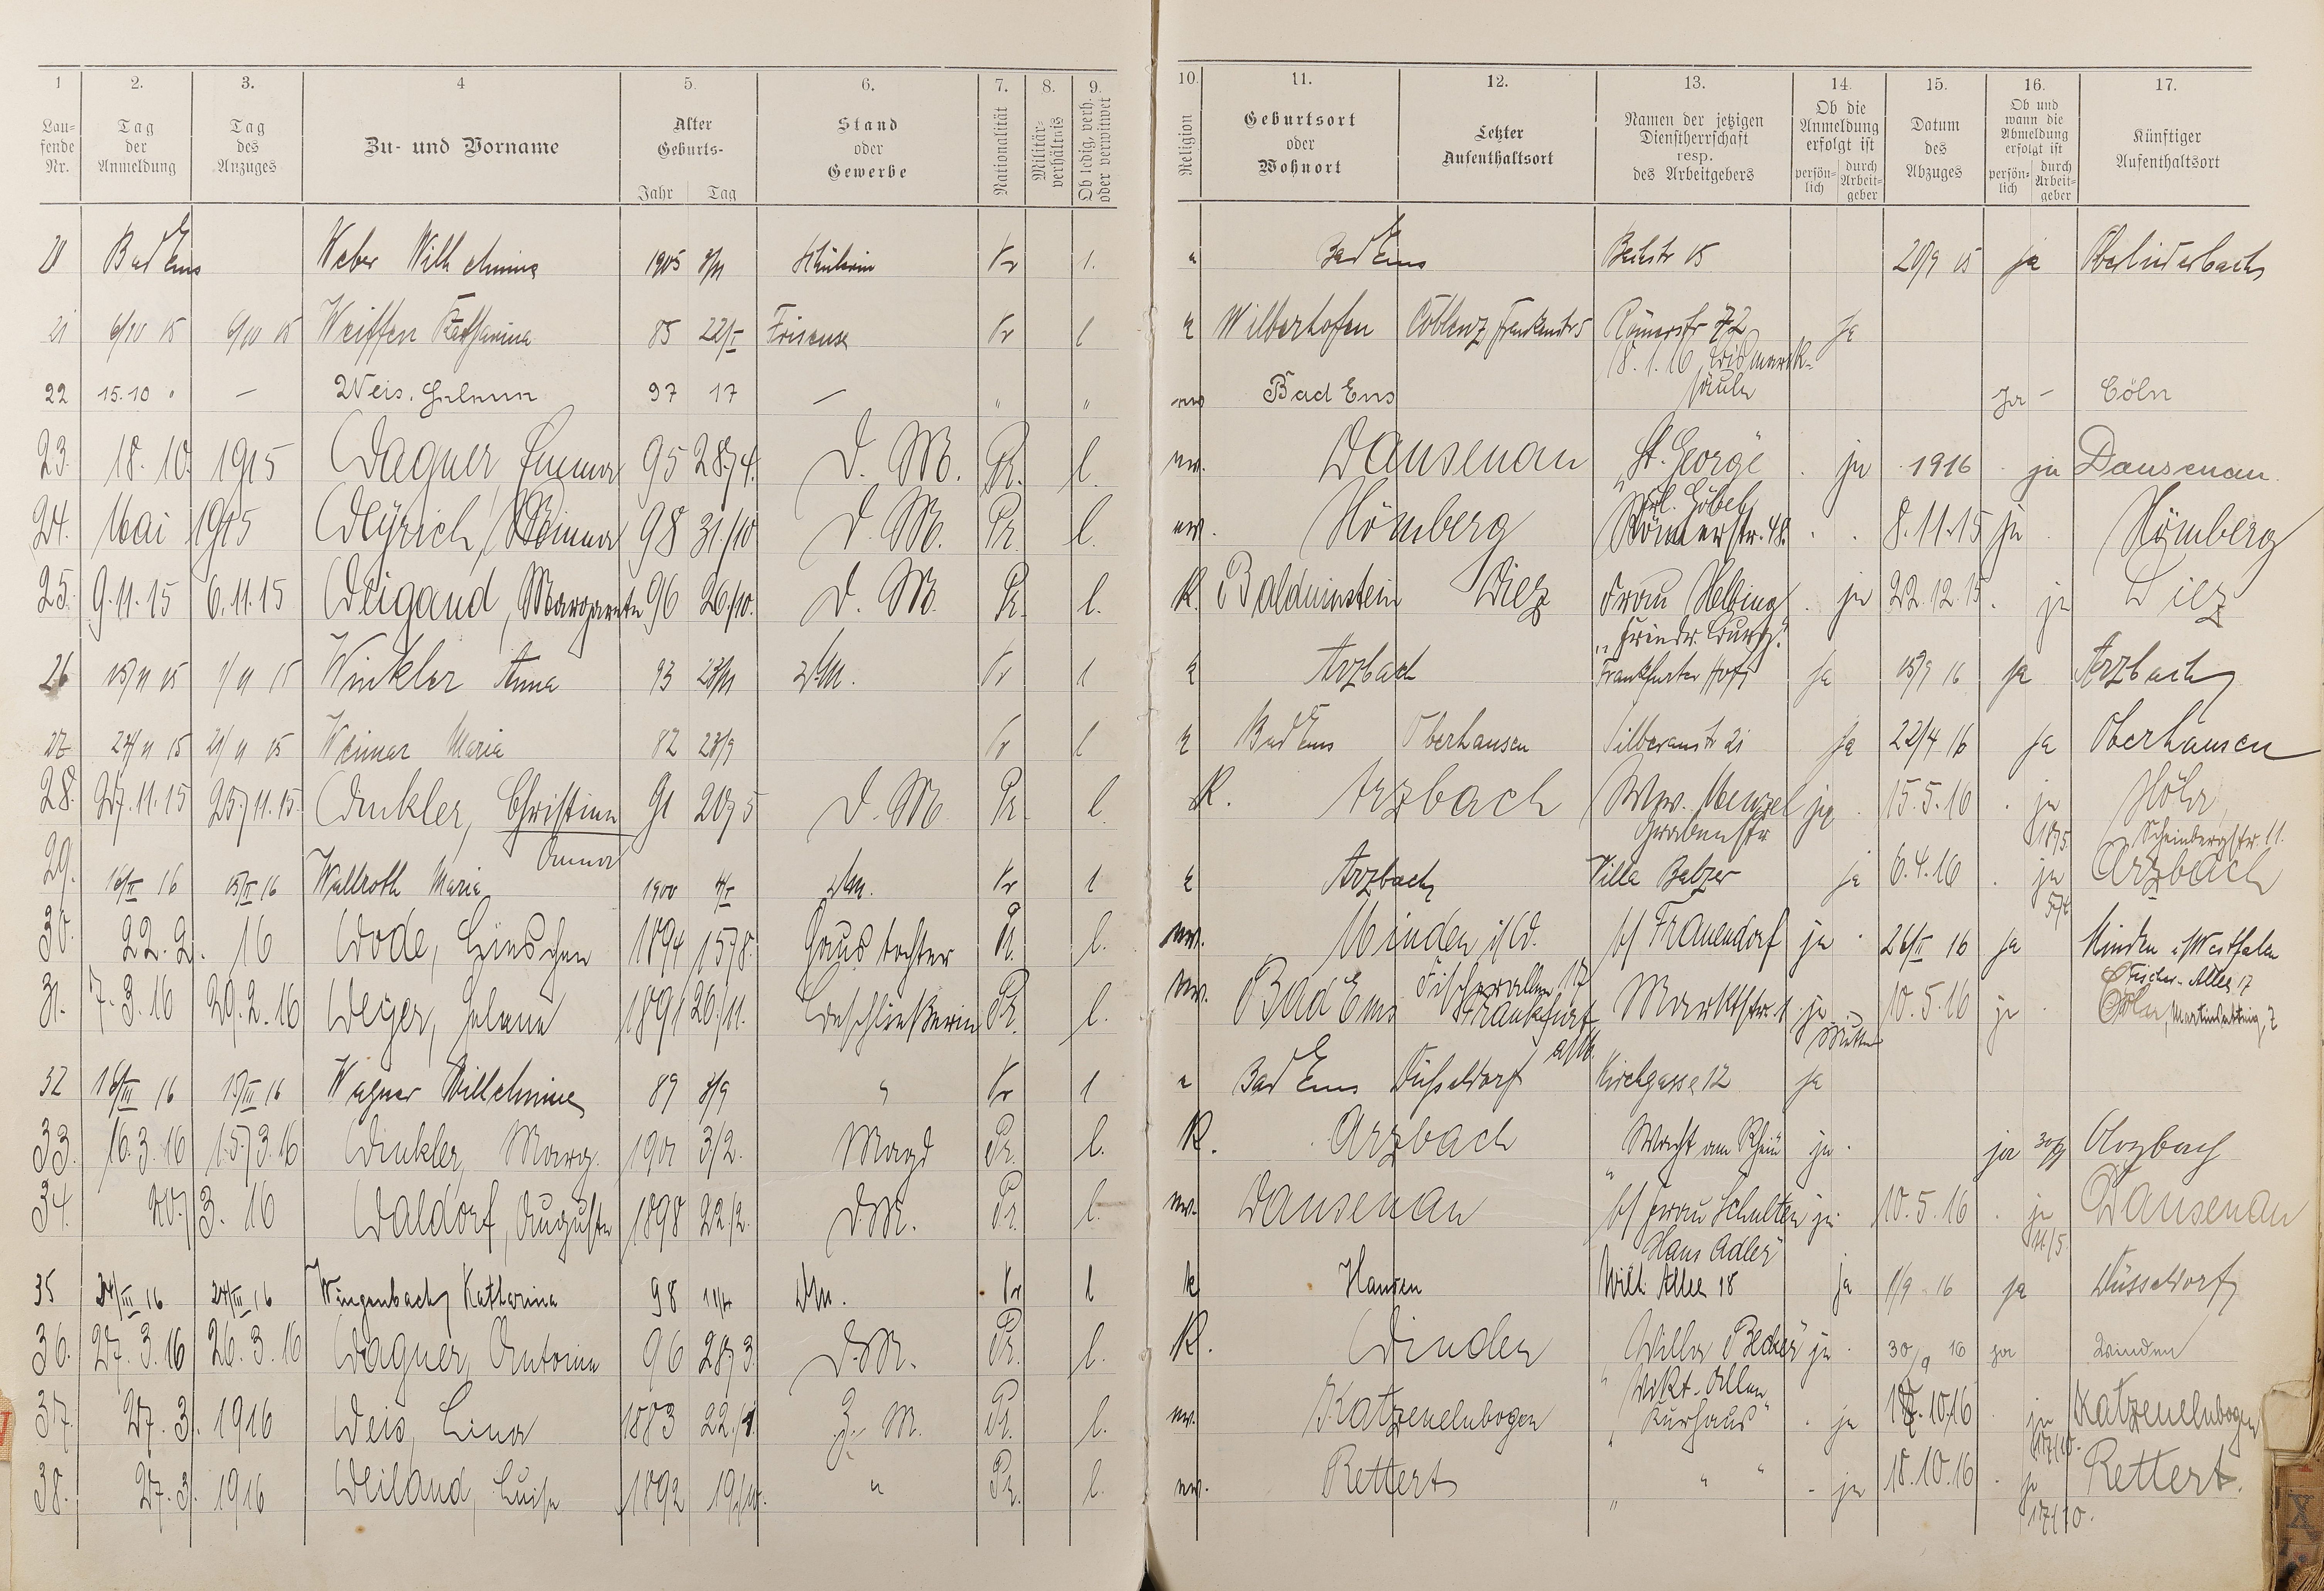 1 2. 3. 4 5. 6. 7. 8. 9. 10. 11. 12. 13. 14. 15. 16. 17.
Lau-
fende
Nr.
Tag
der
Anmeldung
Tag
des
Anzuges
Zu- und Vorname
Alter
Geburts-
Jahr Tag
Stand
oder
Gewerbe
Nationalität
Militär-
verhältnis
Ob ledig, verh.
oder verwitwet
Religion
Geburtsort
oder
Wohnort
Letzter
Aufenthaltsort
Namen der jetzigen
Dienstherrschaft
resp.
des Arbeitgebers
Ob die
Anmeldung
erfolgt ist
persön-
lich
durch
Arbeit-
geber
Datum
des
Abzuges
Ob und
wann die
Abmeldung
erfolgt ist
persön-
lich
durch
Arbeit-
geber
Künftiger
Aufenthaltsort
20 Bad Ems Weber Wilhelmine 1905 Schülerin Pr l. Bad Ems Bachstr 15 20/9 15 ja
21 6/10 15 6/10 15 Katharina 85 22/I Friseuse Pr l Coblenz Römerstr 72 ja
18.1.16 Bismarck-
säule
22 15.10 " — Weis. Helene 97 17 — " " Bad Ems ja — Cöln
23. 18.10. 1915 Wagner, Emma 95 28./4. D. M. Pr. l. ev. Dausenau "St. George" . ja 1916 . ja Dausenau.
24. Mai 1915 Weyrich, Minna 98 31./10 D. M. Pr. l. ev. Hömberg Frl. Göbel
Römerstr. 48. . . 8.11.15 ja . Hömberg
25. 9.11.15 6.11.15 Weigand, Margarete 96 26./10. D. M. Pr. l. K. Balduinstein Diez Frau Helbing . ja 22.12.15 . ja Diez
26 15/11 15 1/11 15 Winkler Anna 93 23/11 DM. Pr l k Arzbach Frankfurter Hof ja 15/9 16 ja Arzbach
27 24/11 15 21/11 15 Weimar Maria 82 23/9 Pr l k Bad Ems Oberhausen Silberaustr 21 ja 22/4 16 ja Oberhausen
28. 27.11.15 25./11.15. Winkler, Christine 91 20/5 D. M. Pr. l. K. Arzbach Ww. Menzel ja . 15.5.16 . ja Höhr,
Anna Grabenstr 18/5 Scheinbergstr. 11.
29. 16/II 16 15/II 16 Wallroth Maria 1900 4/I DM. Pr l k Arzbach Villa Balzer ja 6.4.16 . ja Arzbach
30. 22.2. 16 Wode, Lieschen 1894 15/8. Haustochter Pr. l. ev. Minden i/W. b/ Frauendorf ja . 26/II 16 ja Minden i/Westfalen
Fischer-Allee 17
31. 7.3.16 29.2.16 Weyer, Helene 1891 26./11. Beschließerin Pr. l. ev. Bad Ems Fischerallee 17
Frankfurt a/M. Marktstr. 1 ja 10.5.16 ja . Cöln, 7
32 16/III 16 15/III 16 Wagner Wilhelmine 89 3/9 " Pr l Bad Ems Düsseldorf Kirchgasse 12 ja
33. 16.3.16 15./3.16 Winkler, Marg. 1901 3/2. Magd Pr. l. K. Arzbach "Wacht am Rhein" ja . ja 30/9 Arzbach
34. 20./3. 16 Waldorf, Auguste 1898 22./2. D.M. Pr. l. ev. Dausenau b/ Frau Schulten ja . 10.5.16 . ja Dausenau
"Haus Adler" 11./5.
35 24/III 16 24/III 16 Wingenbach Katharina 98 11/4 DM. Pr l k Hausen Wilh. Allee 18 ja 1/9 16 ja Düsseldorf
36. 27.3.16 26.3.16 Wagner, Antonie 96 28/3. D.M. Pr. l. K. Winden "Villa Becker" ja . 30/9 16 ja Winden
Vikt.-Allee
37. 27.3. 1916 Weis, Lina 1883 22./1. Z. M. Pr. l. ev. Katzenelnbogen "Kurhaus" . ja 17.10.16 . ja Katzenelnbogen
17/10.
38. 27.3. 1916 Weiland, Luise 1892 19./10. " Pr. l. ev. Rettert " " - ja 18.10.16 . ja Rettert.
17/10.